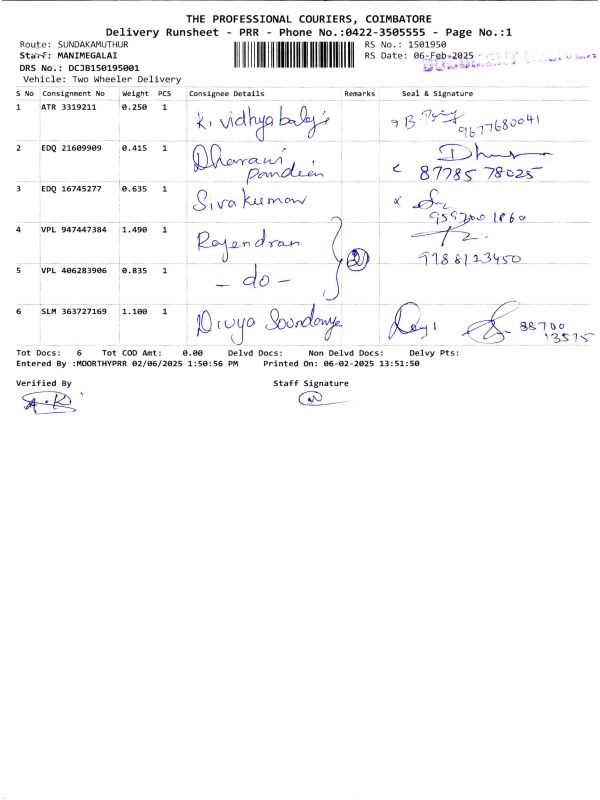 THE PROFESSIONAL COURIERS, COIMBATORE
Delivery Runsheet - PRR - Phone No.:0422-3505555 - Page No.:1
Route: SUNDAKAMUTHUR RS No.: 1501950
Staff: MANIMEGALAI RS Date: 06-Feb-2025
DRS No.: DCJB150195001
Vehicle: Two Wheeler Delivery
S No Consignment No Weight PCS Consignee Details Remarks Seal & Signature
1 ATR 3319211 0.250 1 K. Vidhyabalaji
9677680041
2 EDQ 21609909 0.415 1 Dharani
Pandian 87785 78025
3 EDQ 16745277 0.635 1 Sivakumar
4 VPL 947447384 1.490 1 Rajendran 2
9188123450
5 VPL 406283906 0.835 1 - do -
6 SLM 363727169 1.100 1 Divya Soundarya 88700
13515
Tot Docs: 6 Tot COD Amt: 0.00 Delvd Docs: Non Delvd Docs: Delvy Pts:
Entered By :MOORTHYPRR 02/06/2025 1:50:56 PM Printed On: 06-02-2025 13:51:50
Verified By Staff Signature